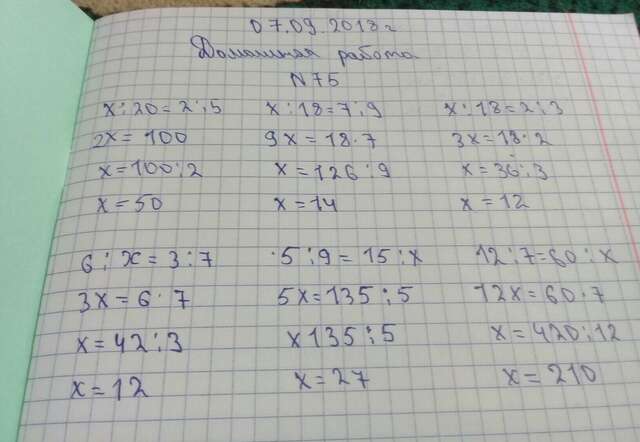 07.09.2018 г
Домашняя работа
N75
x:20=2:5 x:18=7:9 x:18=2:3
2x=100 9x=18·7 3x=18·2
x=100:2 x=126:9 x=36:3
x=50 x=14 x=12
6:x=3:7 5:9=15:x 12:7=60:x
3x=6·7 5x=135:5 12x=60·7
x=42:3 x135:5 x=420:12
x=12 x=27 x=210